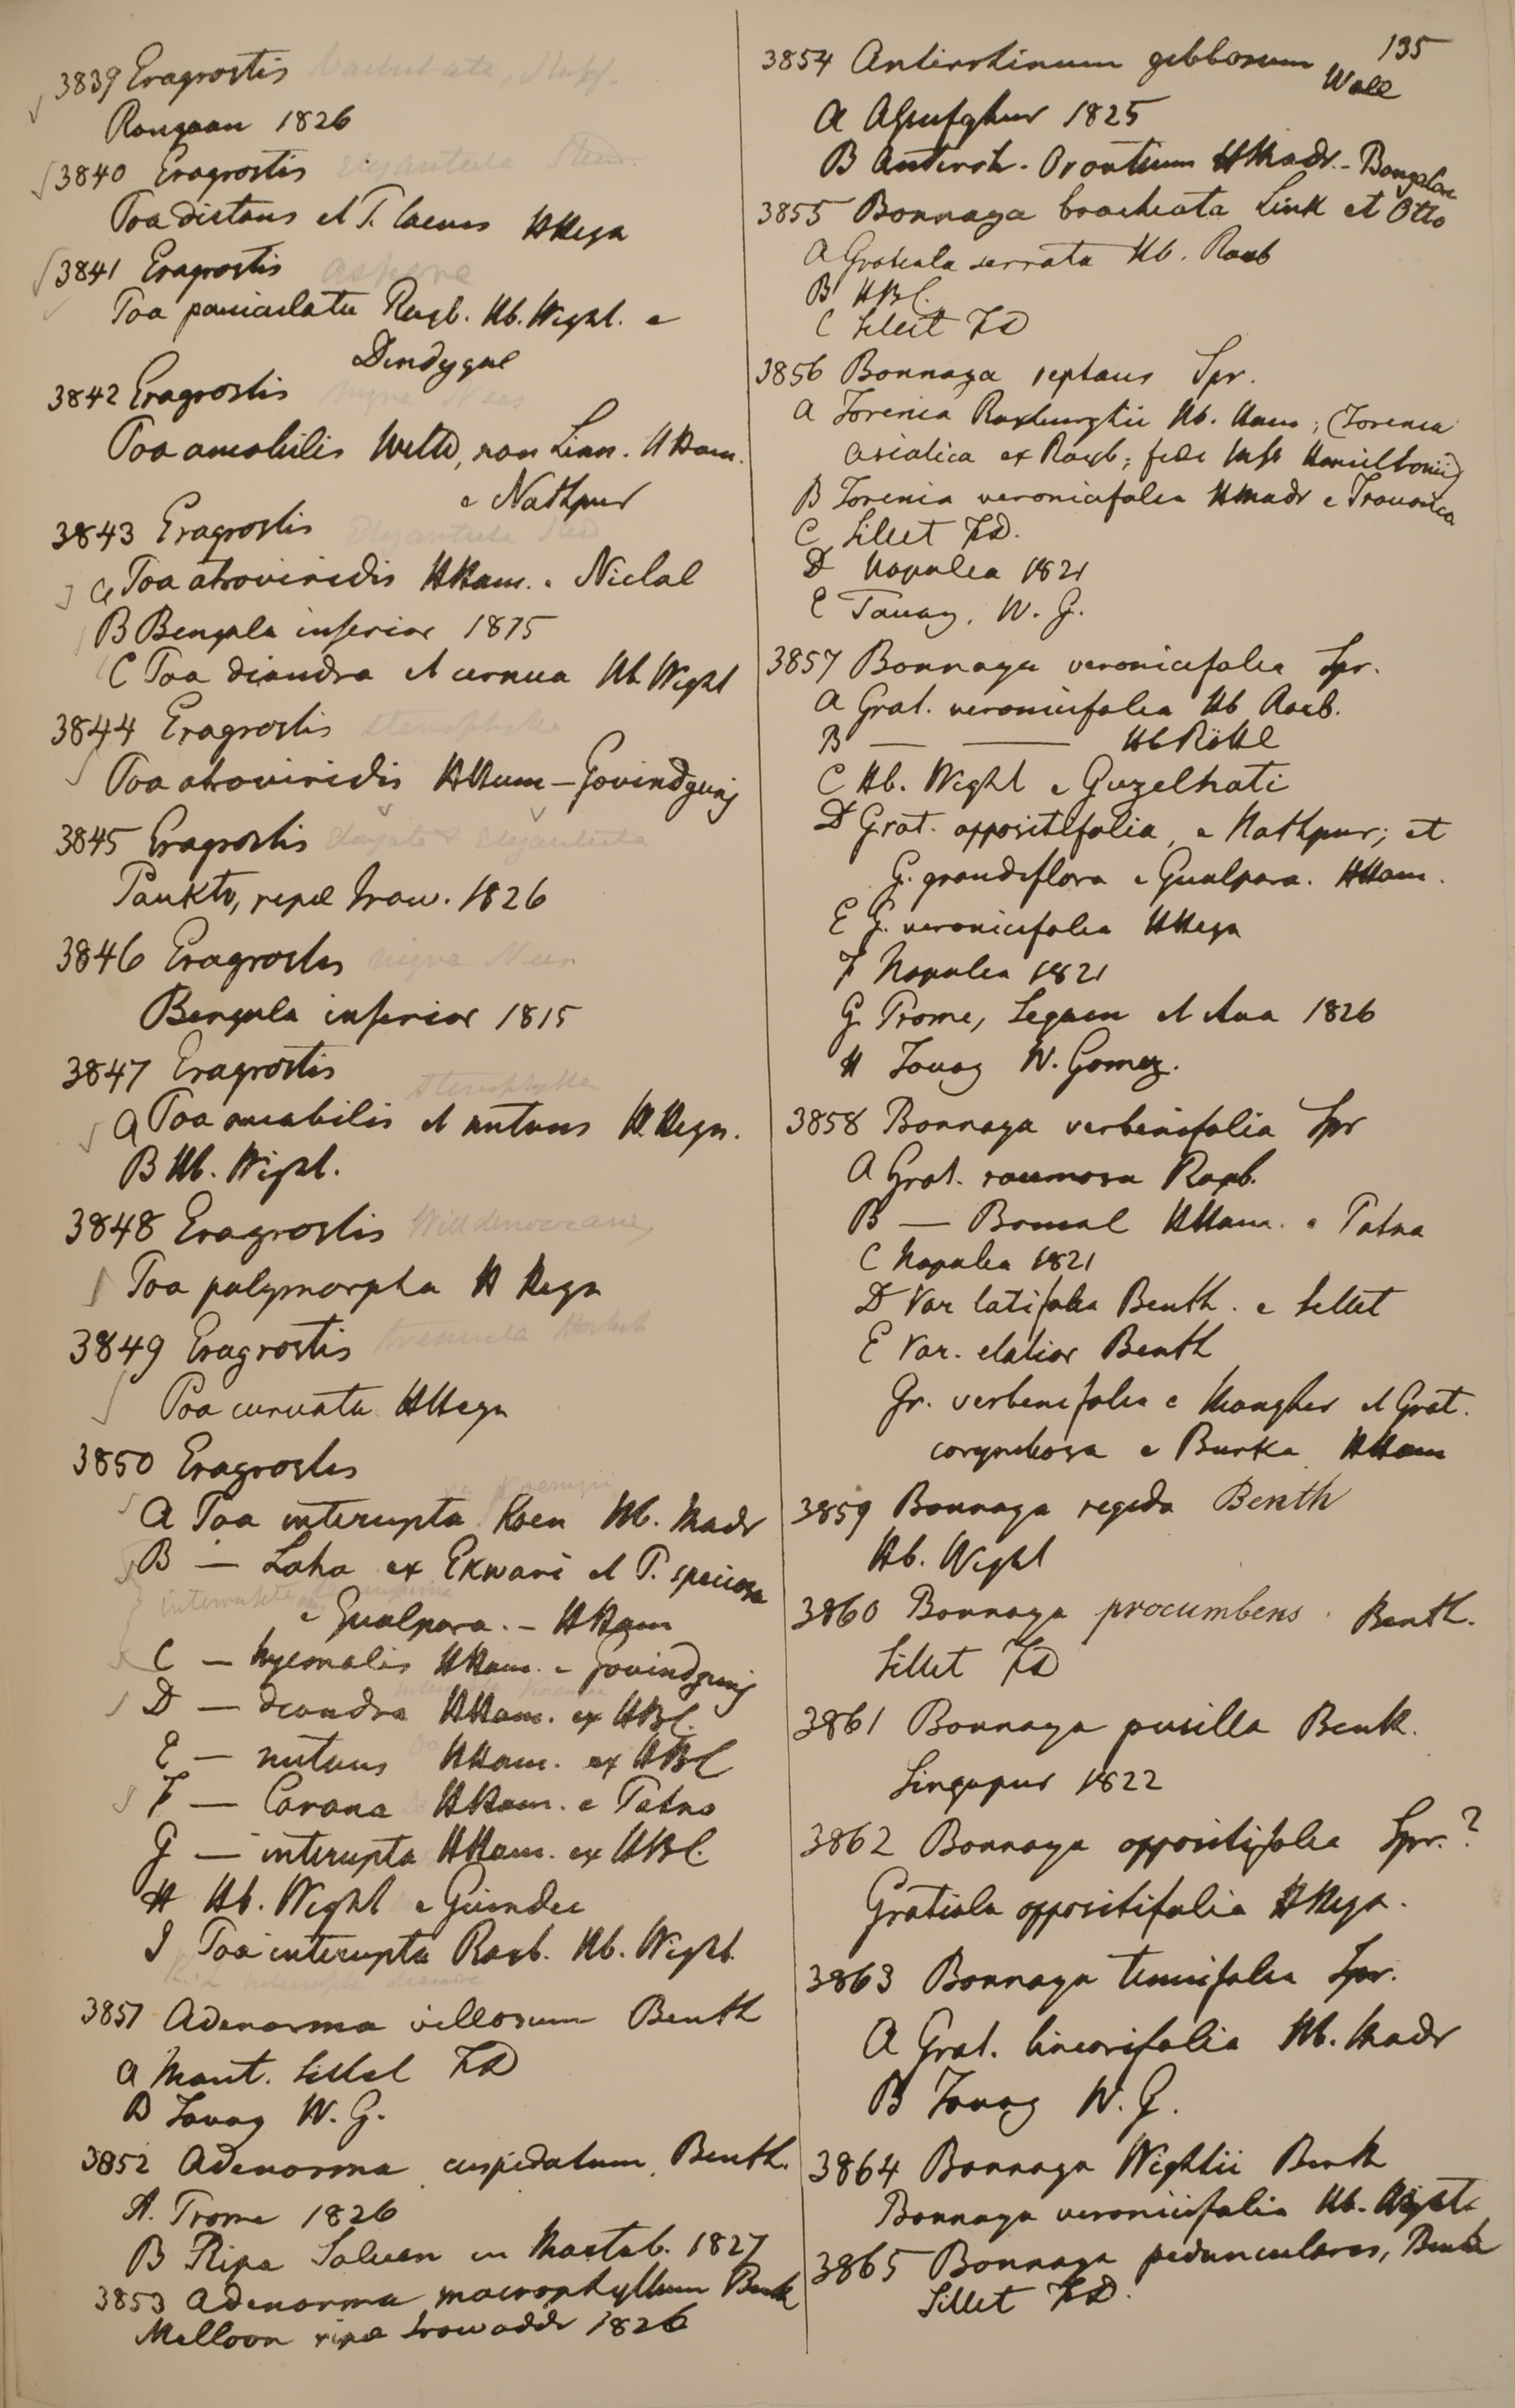 3839 Eragrostis
Rangoan 1826
3840 Eragrostis elegantula Steud.
Poa distans et P. laevis HHega
3841 Eragrostis aspera
Poa paniculata Roxb. Hb. Wight. e
Dindygul
3842 Eragrostis nigra Nees
Poa amabilis Willd, non Linn. HHam.
e Nathpur
3843 Eragrostis Elegantula Steud
a Poa atroviridis HHam. e Niclal
B Bengala inferior 1815
C Poa diandra et cernua Hb. Wight
3844 Eragrostis stenophylla
Poa atroviridis HHam — Govindgunj
3845 Eragrostis elongata & elegantula
Paukto, ripae Iraw. 1826
3846 Eragrostis nigra Nees
Bengala inferior 1815
3847 Eragrostis
stenophylla
a Poa amabilis et nutans HHega.
B Hb. Wight.
3848 Eragrostis Willdenoviana
Poa polymorpha H Hega
3849 Eragrostis tremula Hochst
Poa curvata HHega
3850 Eragrostis
va Koenigii
a Poa interupta Koen Hb. Madr
B — Laha ex Ekwari et P. speciosa
e Gualpara. - HHam
C — hyemalis HHam. e Govindgunj
D — diandra HHam. ex HBC.
E — nutans HHam. ex HBC
F — Carana HHam. e Patna
G — interupta HHam. ex HBC.
H Hb. Wight e Guindee
I Poa interupta Roxb. Hb. Wight.
3851 Adenosma villosum Benth
a Mont. Sillet FD
B Tavoy W. G.
3852 Adenosma cuspidatum Benth.
A. Prome 1826
B Ripa Saluen in Martab. 1827
3853 Adenosma macrophyllum Benth
Melloon ripa Irawaddi 1826
135
3854 Antirrhinum gibbosum Wall
a 1825
B Antirrh. Orontium HMadr. - Bangalore
3855 Bonnaya bracheata Link et Otto
a Gratiola serrata Hb. Roxb
B HBC.
C Sillet FD
3856 Bonnaya reptans Spr.
a Torenia Roxburghii Hb. Ham; (Torenia
asiatica ex Roxb; fide Mss Hamiltonii)
B Torenia veronicifolia HMadr e Travanca
C Sillet FD.
D Napalea 1821
E Tavoy, W. G.
3857 Bonnaya veronicifolia Spr.
a Grat. veronicifolia Hb Roxb.
B — — Hb Röttl
C Hb. Wight e Guzelhati
D Grat. oppositifolia, e Nathpur; et
G. grandiflora e Gualpara. HHam.
E G. veronicifolia HHega
F Napalea 1821
G Prome, Segaen et Ava 1826
H Tavoy W. Gomez.
3858 Bonnaya verbenifolia Spr
a Grat. racemosa Roxb.
B — HHam. e Patna
C Napalea 1821
D Var latifolia Benth. e Sillet
E Var. elatior Benth
Gr. verbenifolia e Mongher et Grat.
corymbosa e Burka HHam
3859 Bonnaya regida Benth
Hb. Wight
3860 Bonnaya procumbens Benth.
Sillet FD
3861 Bonnaya pusilla Benth.
Singapur 1822
3862 Bonnaya oppositifolia Spr.?
Gratiola oppositifolia HHega.
3863 Bonnaya tenuifolia Spr.
a Grat. linearifolia Hb. Madr
B Tavoy W. G.
3864 Bonnaya Wightii Benth
Bonnaya veronicifolia Hb. Wight
3865 Bonnaya peduncularis, Benth
Sillet FD.